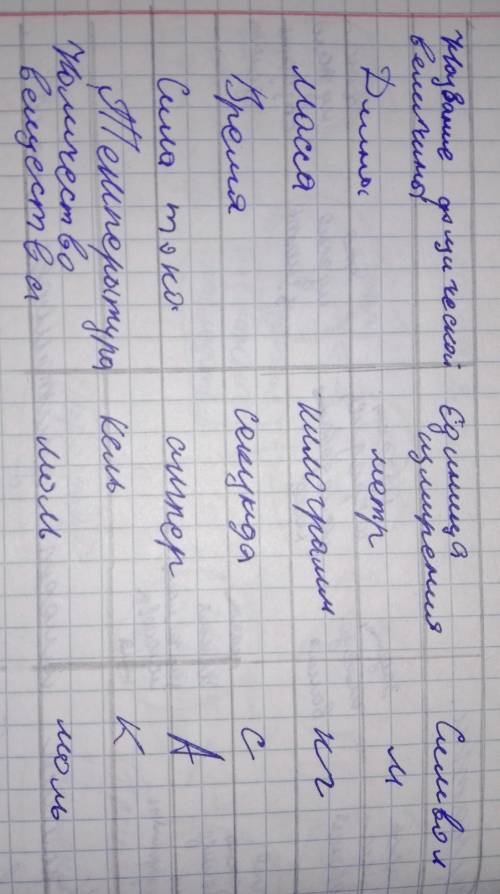 Название физической величины Единица измирения Символ
Длины метр м
Масса килограмм кг
Время секунда с
Сила тока ампер А
Температура кель К
Количество вещества моль моль